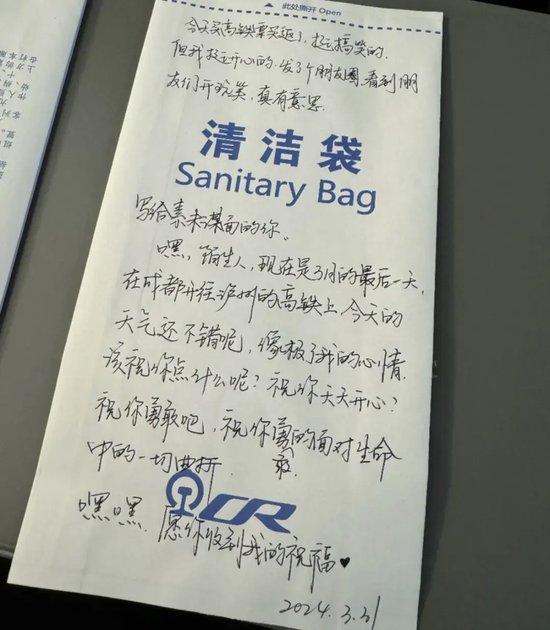 此处撕开 Open
今天买高铁票买迟了,挺搞笑的.
但我挺开心的.发了个朋友圈.看到朋
友们开玩笑,真有意思.
清洁袋
Sanitary Bag
写给素未谋面的你.
嘿,陌生人,现在是3月的最后一天,
在成都开往泸州的高铁上,今天的
天气还不错呢,像极了我的心情.
该祝你点什么呢?祝你天天开心?
祝你勇敢吧,祝你勇的面对生命
敢
中的一切曲折.
CR
嘿嘿.愿你收到我的祝福♥
2024.3.31